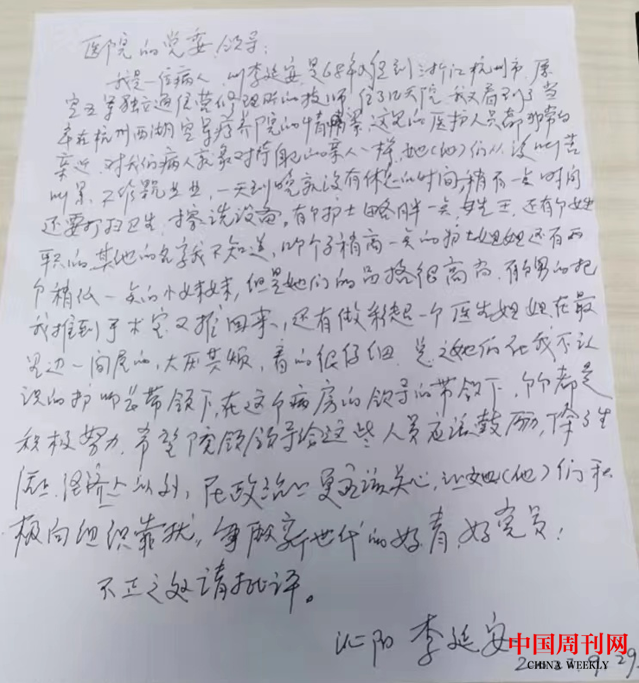 医院的党委、领导:
我是一位病人,叫李延安,是68年入伍到浙江杭州市,原
空五军独立通信营修理所的技师,住了几天院,我又看到了当
年在杭州西湖空军疗养院的情景,这里的医护人员都非常的
亲近,对我们病人就象对待自己的亲人一样,她(他)们从没叫苦
叫累,工作兢兢业业,一天到晚就没有休息的时间,稍有一点时间
还要打扫卫生,擦洗设备。有个护士略胖一点,姓王,还有个姓
职的,其他的名字我不知道,个子稍高一点的护士姐姐还有两
个稍低一点的小妹妹,但是她们的品格很高尚,有个男的把
我推到手术室又推回来,还有做彩超一个医生姐姐在最
里边一间屋的,不厌其烦,看的很仔细,总之她们在我不认
识的护师长带领下,在这个病房的领导的带领下,个个都是
积极努力,希望院领领导给这些人员应该鼓励,除了生
活上经济上以外,在政治上更应该关心,让她(他)们积
极向组织靠拢,争取新世代的好青,好党员!
不正之处请批评。
沁阳 李延安
9.29.
中国周刊网
CHINA WEEKLY